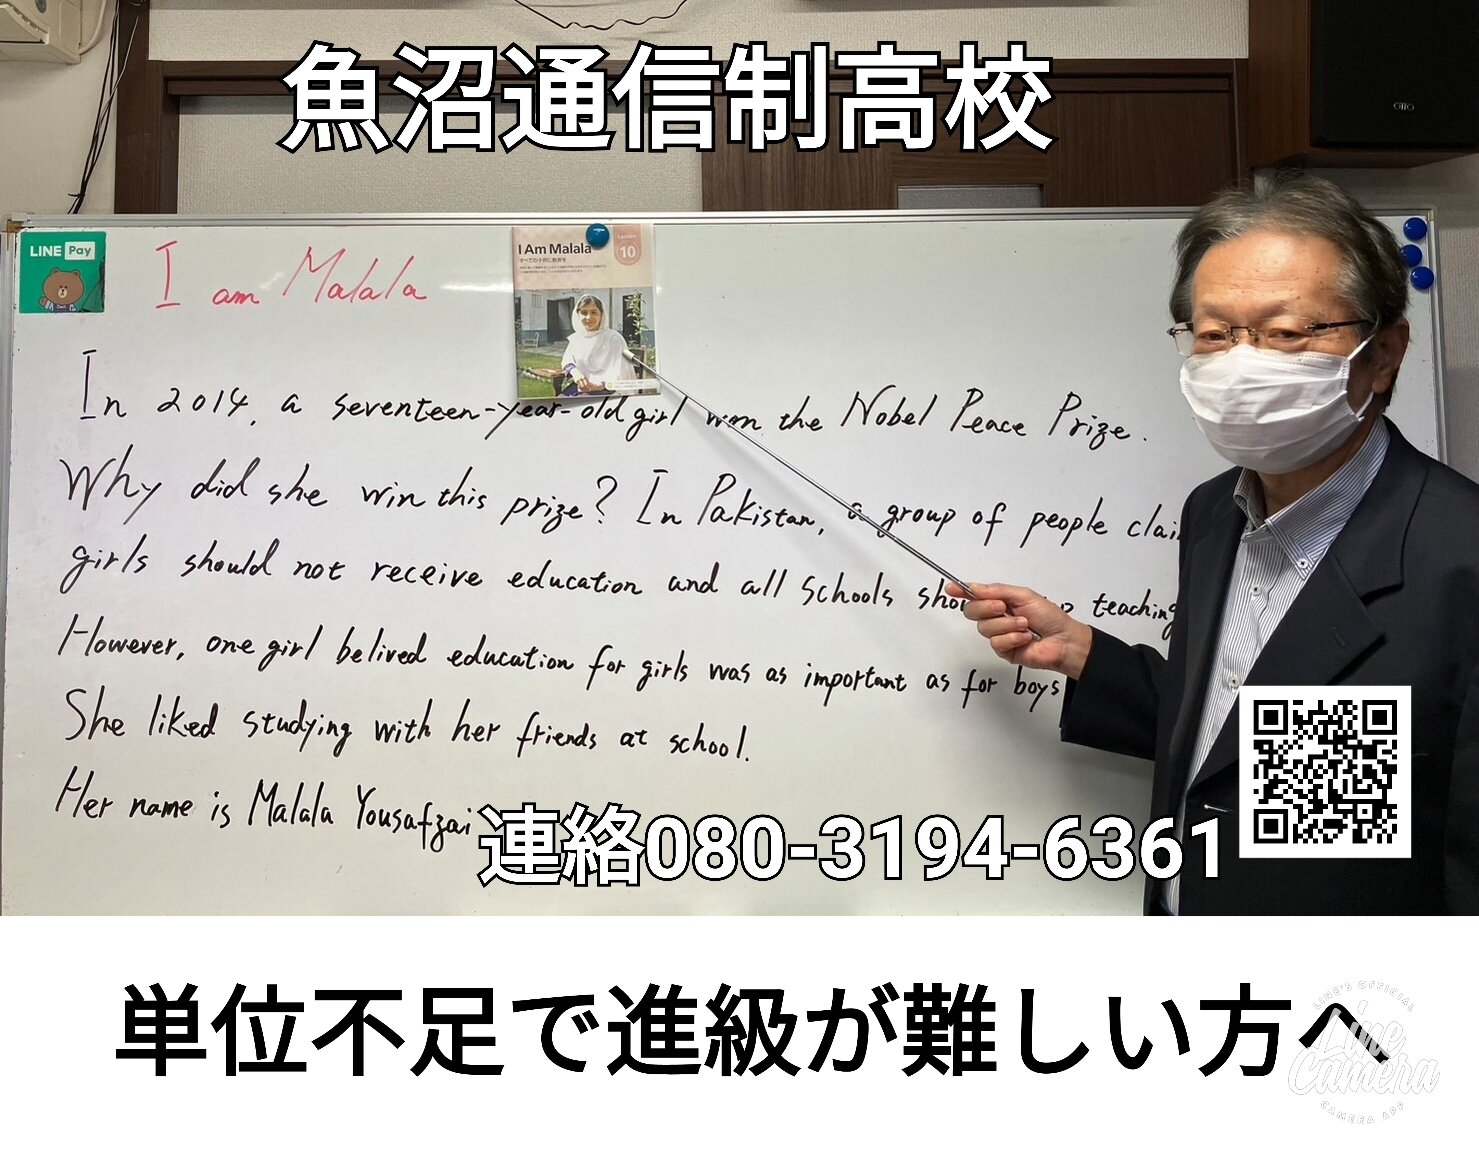 魚沼通信制高校
LINE Pay
I am Malala
I Am Malala
Lesson
10
すべての子供に教育を
In 2014, a seventeen-year-old girl won the Nobel Peace Prize.
Why did she win this prize? In Pakistan, a group of people clai
girls should not receive education and all schools sho teaching
However, one girl belived education for girls was as important as for boys
She liked studying with her friends at school.
Her name is Malala Yousafzai
連絡080-3194-6361
単位不足で進級が難しい方へ
LINE'S OFFICIAL
Line
Camera
CAMERA APP